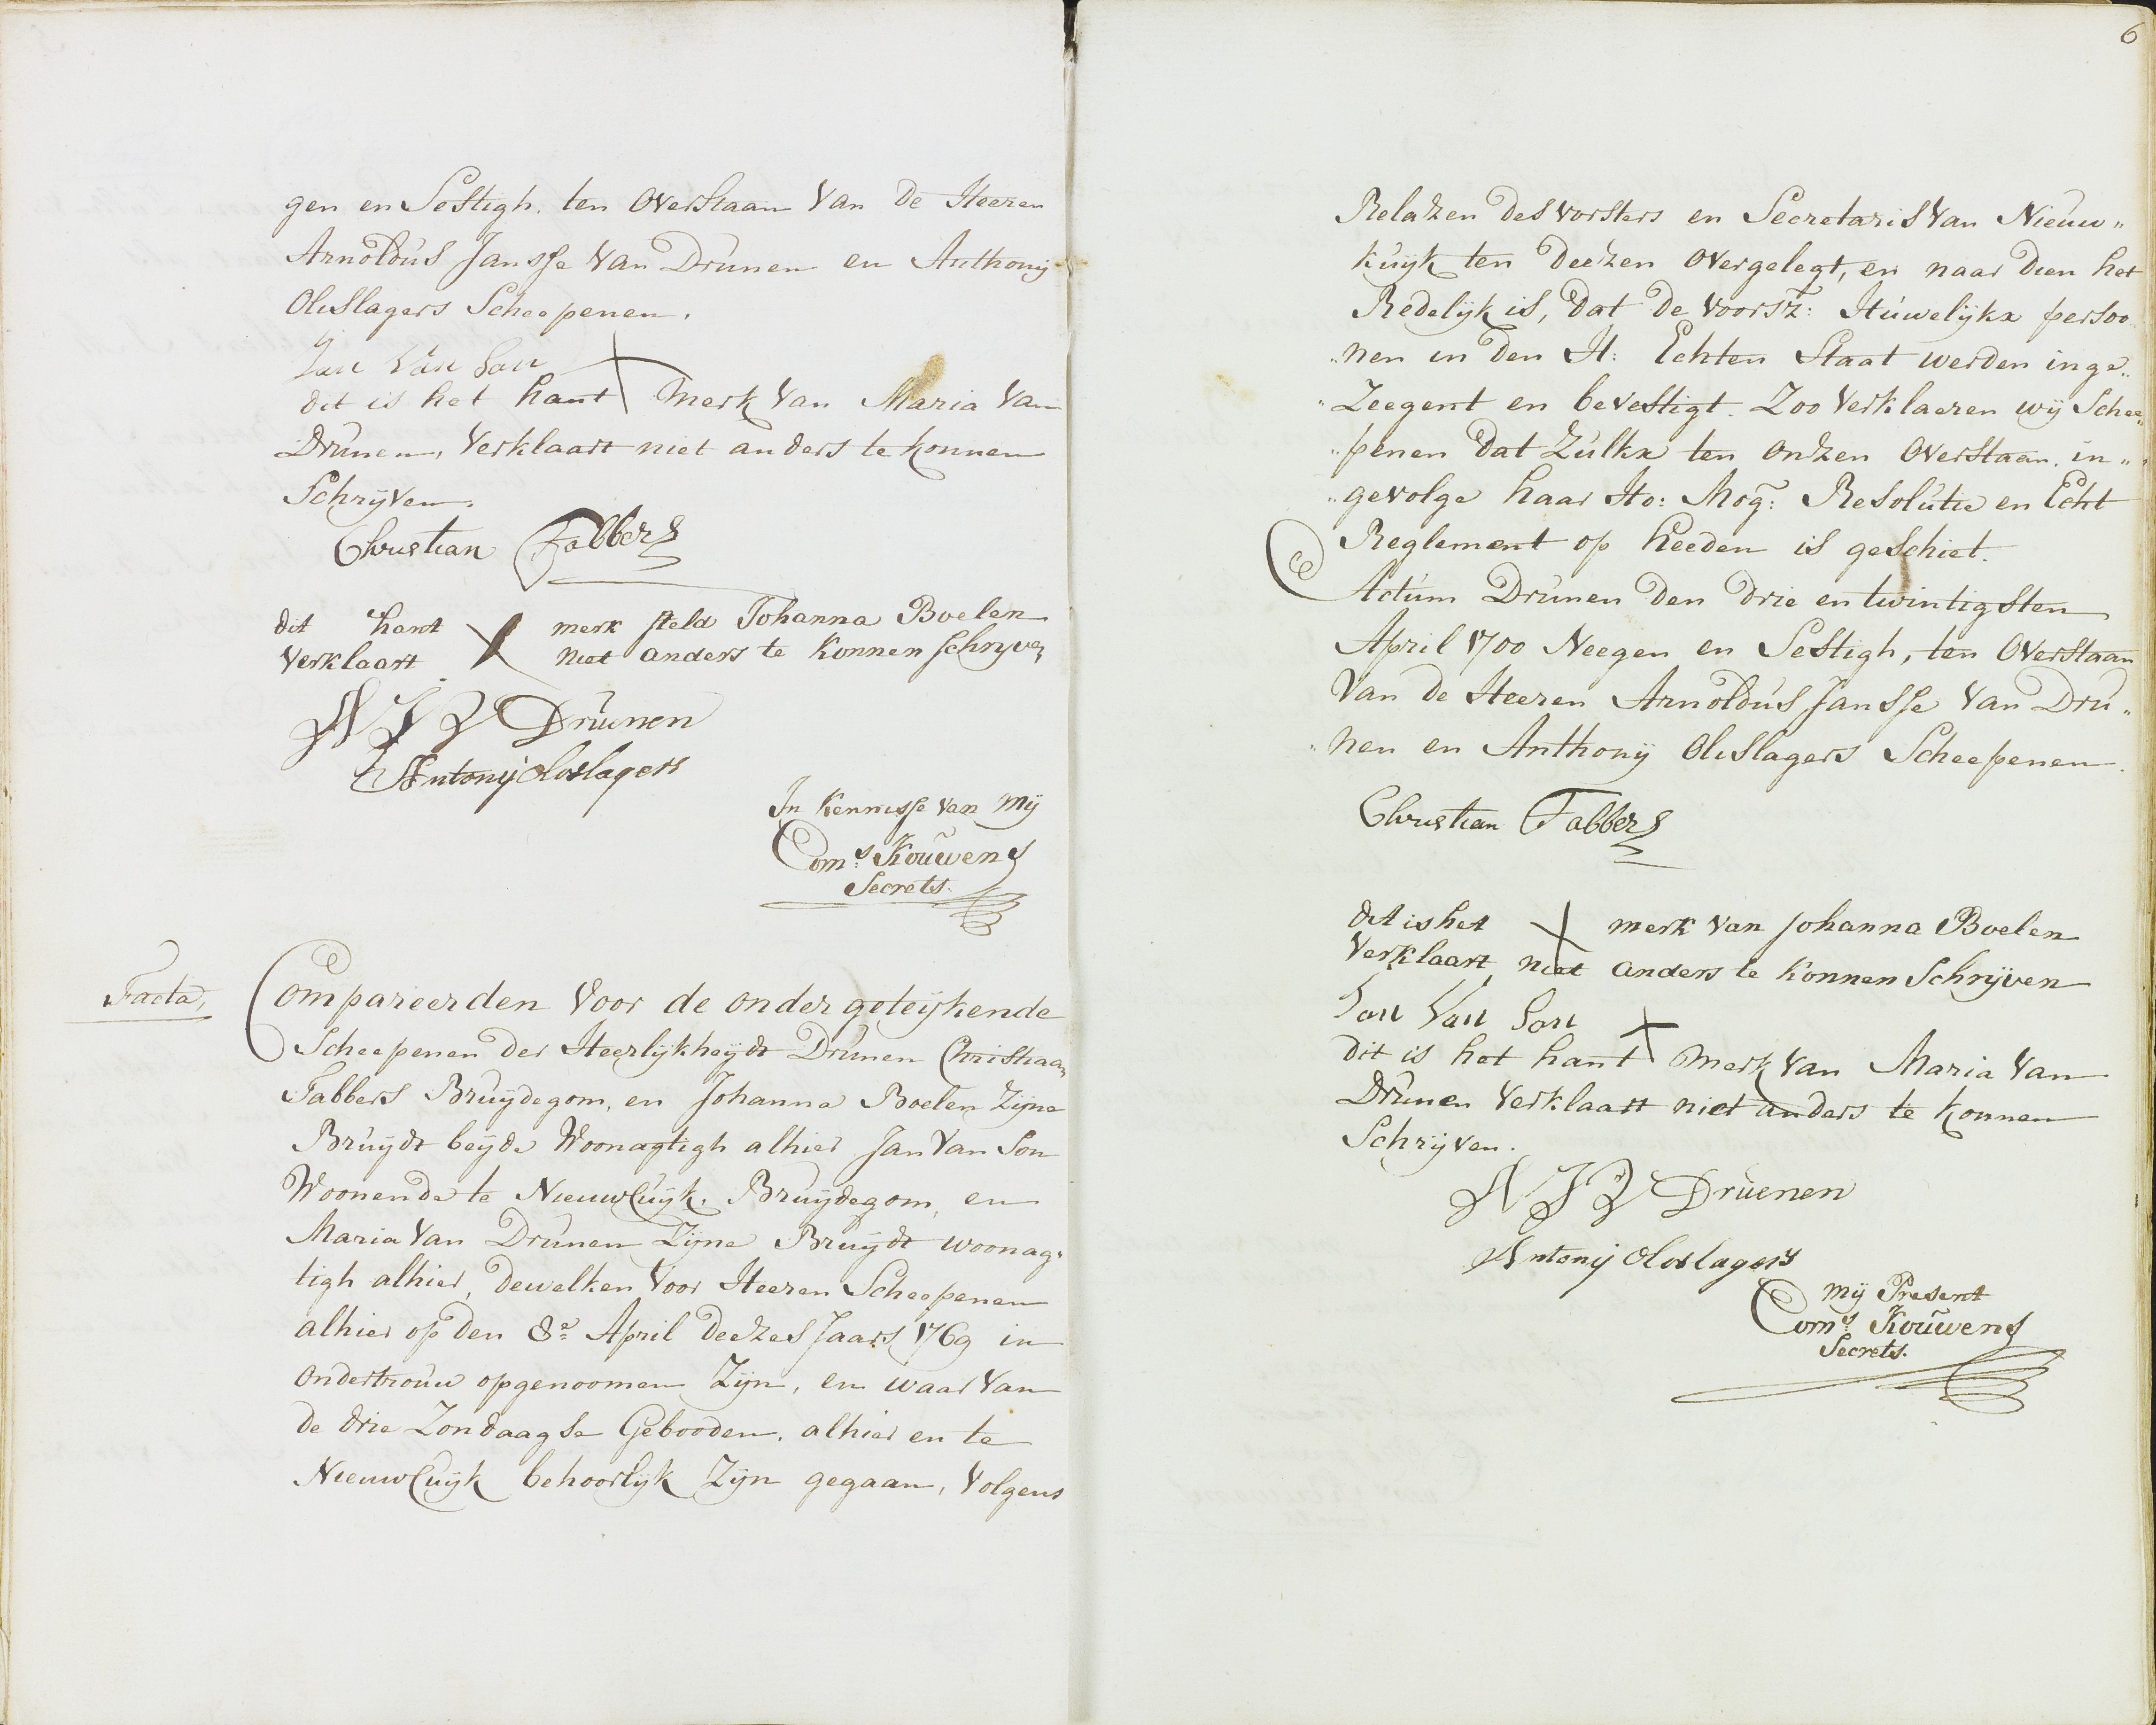 gen en Sestigh. ten Overstaan Van de Heeren
Arnoldus Jansse Van Drunen en Anthonij
Olislagers Scheepenen.
Jan Van Son
dit is het hant X Merk Van Maria Van
Drunen, Verklaart niet anders te konnen
Schrijven.
Christian Fabbers
dit hant X merk steld Johanna Boelen
Verklaart niet anders te konnen schryven
A J V Druenen
Antonij oloslagers
In Kennisse van Mij
Corns Kouwens
Secrets.
Facta,
Compareerden Voor de ondergeteijkende
Scheepenen der Heerlijkheijdt Drunen Christiaan
Fabbers Bruijdegom, en Johanna Boelen Zijne
Bruijdt beijde Woonagtigh alhier Jan Van Son
Woonende te Nieuwcuijk, Bruijdegom, en
Maria Van Drunen Zijne Bruijdt woonag„
tigh alhier, dewelken Voor Heeren Scheepenen
alhier op den 8e April deezes Jaars 1769 in
Ondertrouw opgenoomen Zijn, en waar Van
de drie Zondaagse Gebooden, alhier en te
Nieuwcuijk behoorlijk Zijn gegaan, Volgens
6
Relazen des Vorsters en Secretaris Van Nieuw„
kuijk ten deezen Overgelegt, en naar dien het
Redelijk is, dat de Voorsz: Huwelijkx persoo„
„nen in den H: Echten Staat werden inge„
„Zeegent en bevestigt. Zoo Verklaeren wij Schee„
„penen dat Zulkx ten onzen Overstaan, in„
„gevolge haar Ho: Mog: Resolutie en Echt
Reglement op heeden is geschiet.
Actum Drunen den drie en twintigsten
April 1700 Neegen en Sestigh, ten Overstaan
Van de Heeren Arnoldus Jansse Van Dru„
„nen en Anthonij Olislagers Scheepenen.
Christian Fabbers
dit is het X merk van Johanna Boelen
Verklaart niet anders te konnen Schrijven
Jan Van Son
dit is het hant X Merk Van Maria Van
Drunen Verklaart niet anders te konnen
Schrijven.
A J V Druenen
Antonij oloslagers
Mij Present
Corns Kouwens
Secrets.